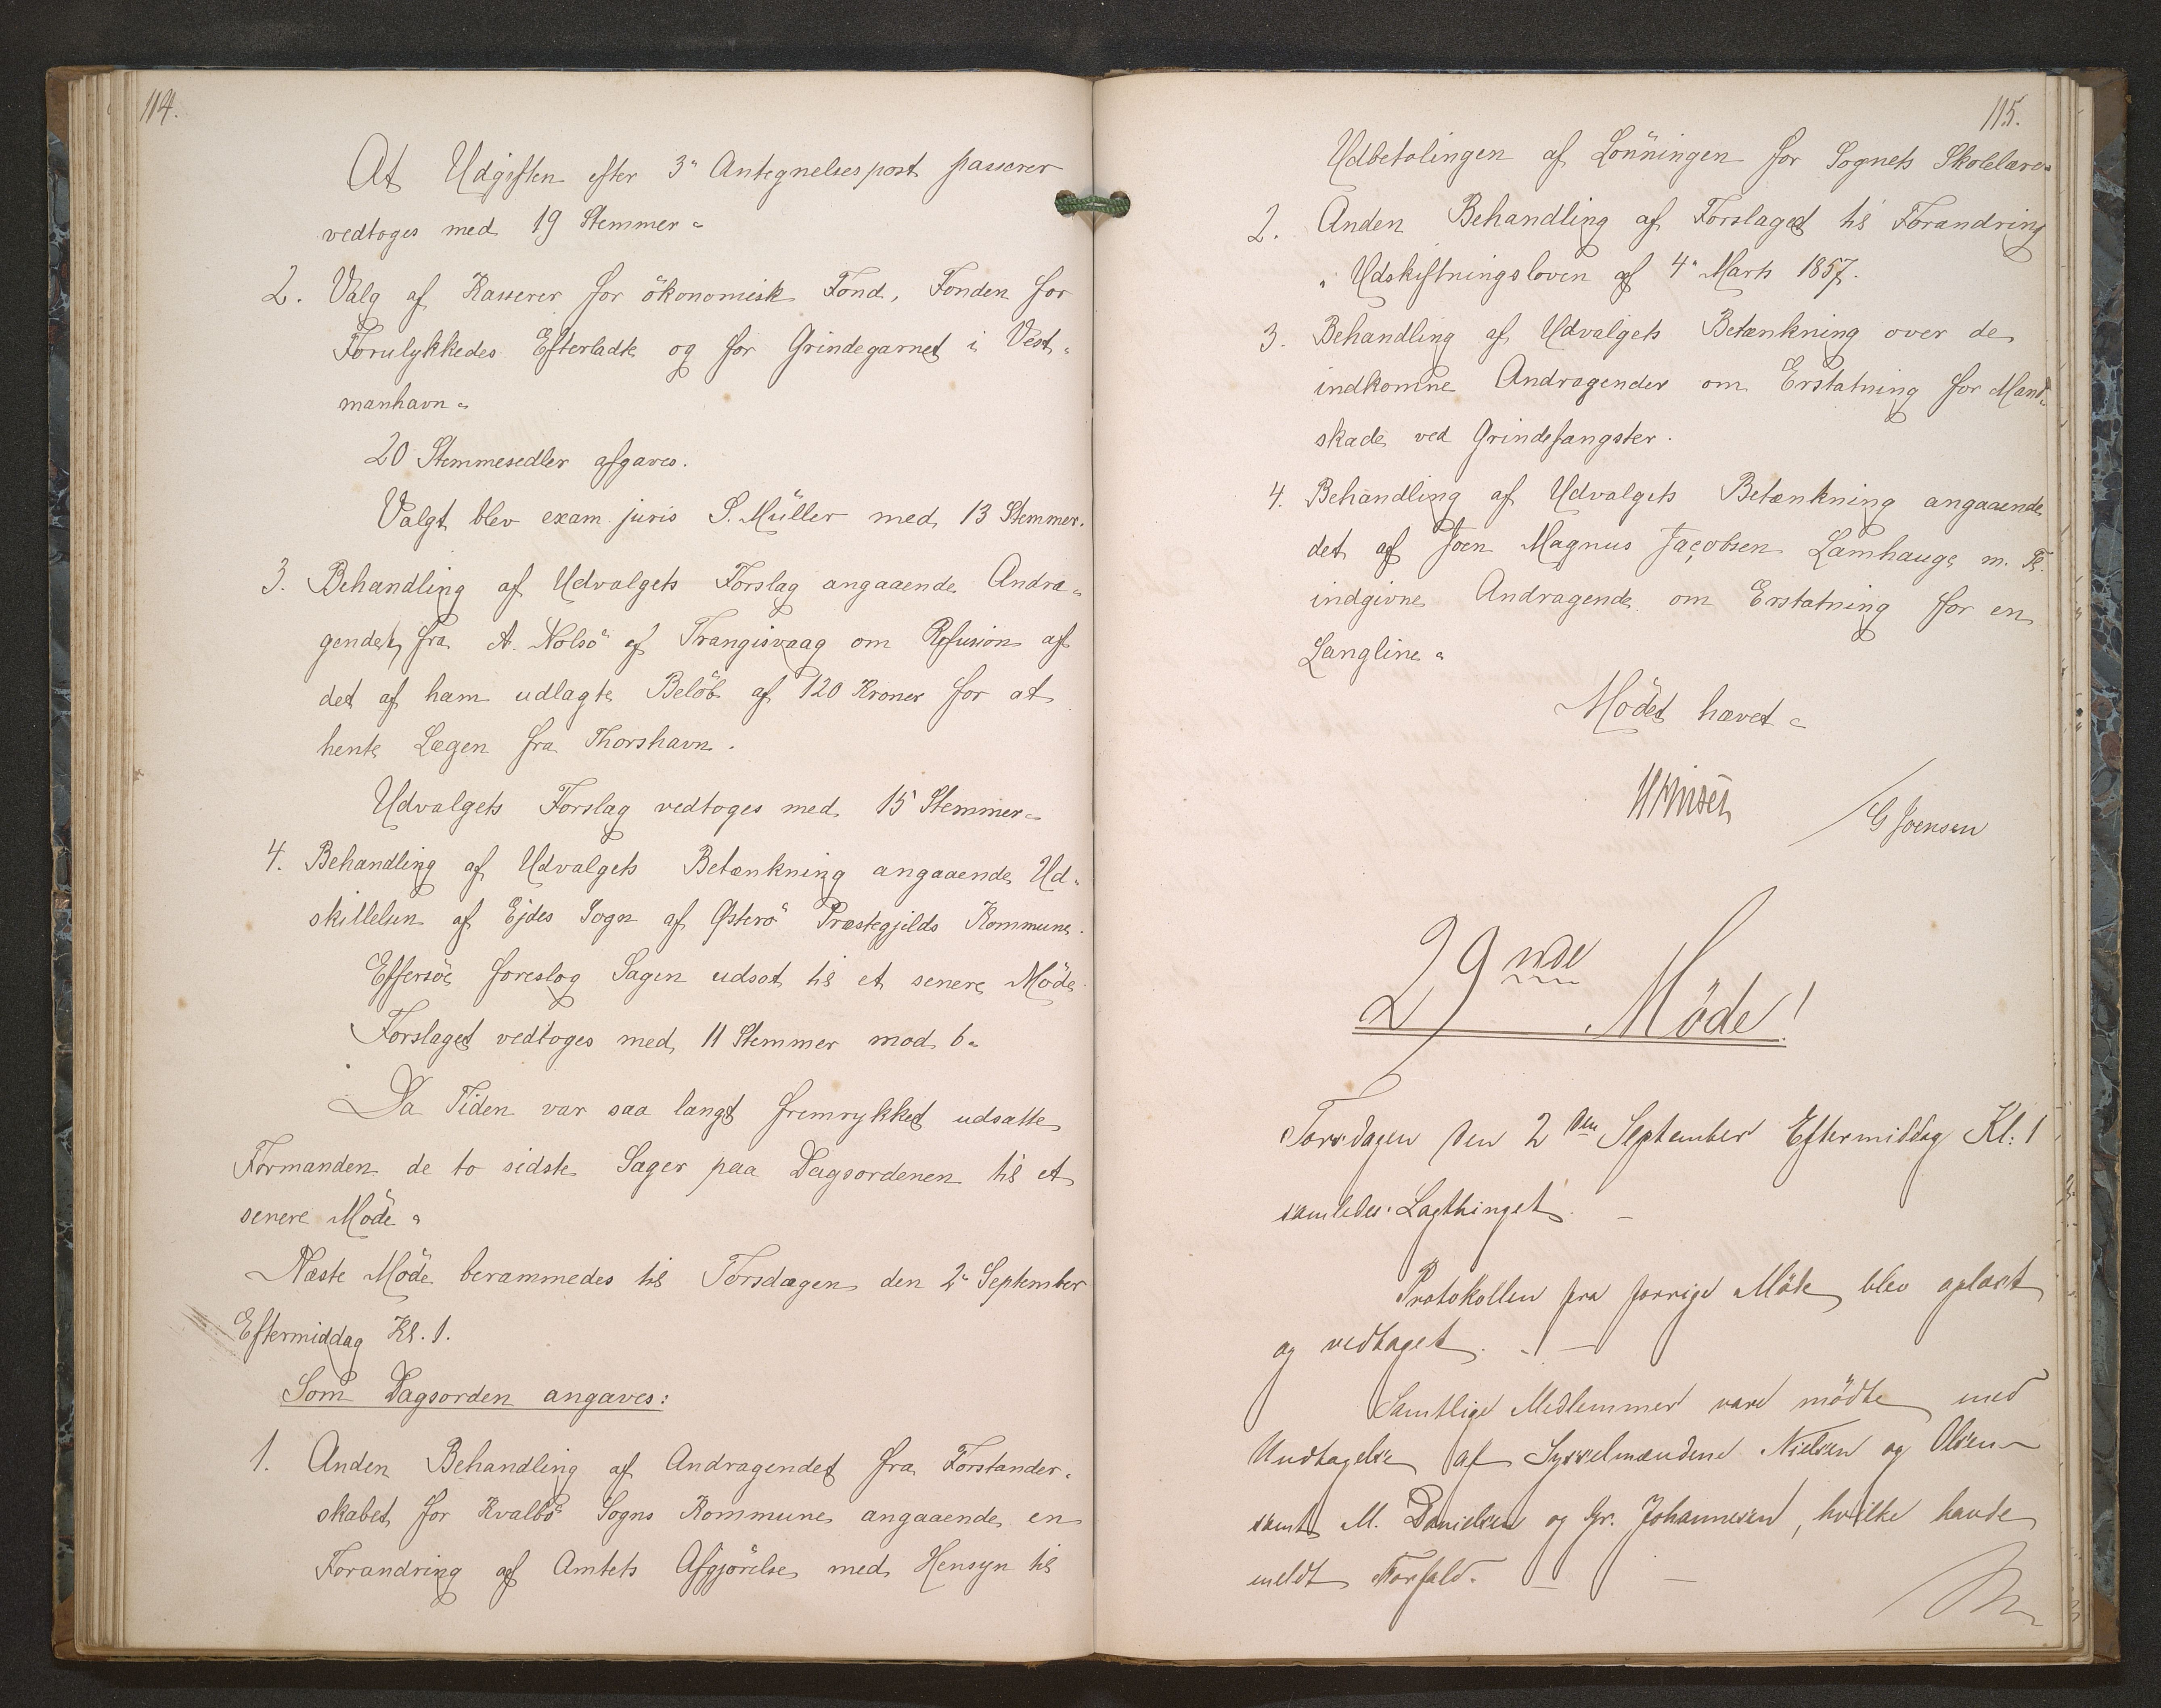 114.
At Udgiften efter 3" Antegnelsespost passerer
vedtoges med 19 Stemmer.
2. Valg af Kasserer for ökonomisk Fond, Fonden for
Forulykkedes Efterladte og for Grindegarnet i Vest-
manhavn.
20 Stemmesedler afgaves.
Valgt blev exam. juris S. Müller med 13 Stemmer.
3. Behandling af Udvalgets Forslag angaaende Andra-
gendet fra A. Nolsö af Trangisvaag om Refusion af
det af ham udlagte Belöb af 120 Kroner for at
hente Lægen fra Thorshavn.
Udvalgets Forslag vedtoges med 15 Stemmer.
4. Behandling af Udvalgets Betænkning angaaende Ud-
skillelsen af Ejdes Sogn af Østerö Præstegjelds Kommune.
Effersöe foreslog Sagen udsat til et senere Möde.
Forslaget vedtoges med 11 Stemmer mod 6.
Da Tiden var saa langt fremrykket udsatte
Formanden de to sidste Sager paa Dagsordenen til et
senere Möde.
Næste Möde berammedes til Torsdagen den 2" September
Eftermiddag Kl. 1.
Som Dagsorden angaves:
1. Anden Behandling af Andragendet fra Forstander-
skabet for Kvalbö Sogns Kommune angaaende en
Forandring af Amtets Afgjörelse med Hensyn til
115.
Udbetalingen af Lönningen for Sognets Skolelærer
2. Anden Behandling af Forslaget til Forandring
i Udskiftningsloven af 4" Marts 1857.
3. Behandling af Udvalgets Betænkning over de
indkomne Andragender om Erstatning for Mand-
skade ved Grindefangster.
4. Behandling af Udvalgets Betænkning angaaende
det af Joen Magnus Jacobsen Lamhauge m. Fl.
indgivne Andragende om Erstatning for en
Langline.
Mödet hævet.
G Joensen
29nde Möde!
Torsdagen den 2den September Eftermiddag Kl: 1
samledes Lagthinget. —
Protokollen fra forrige Möde blev oplæst
og vedtaget. —
Samtlige Medlemmer vare mödte med
Undtagelse af Sysselmændene Nielsen og Olsen
samt M. Danielsen og Gr. Johannesen, hvilke havde
meldt Forfald. — —